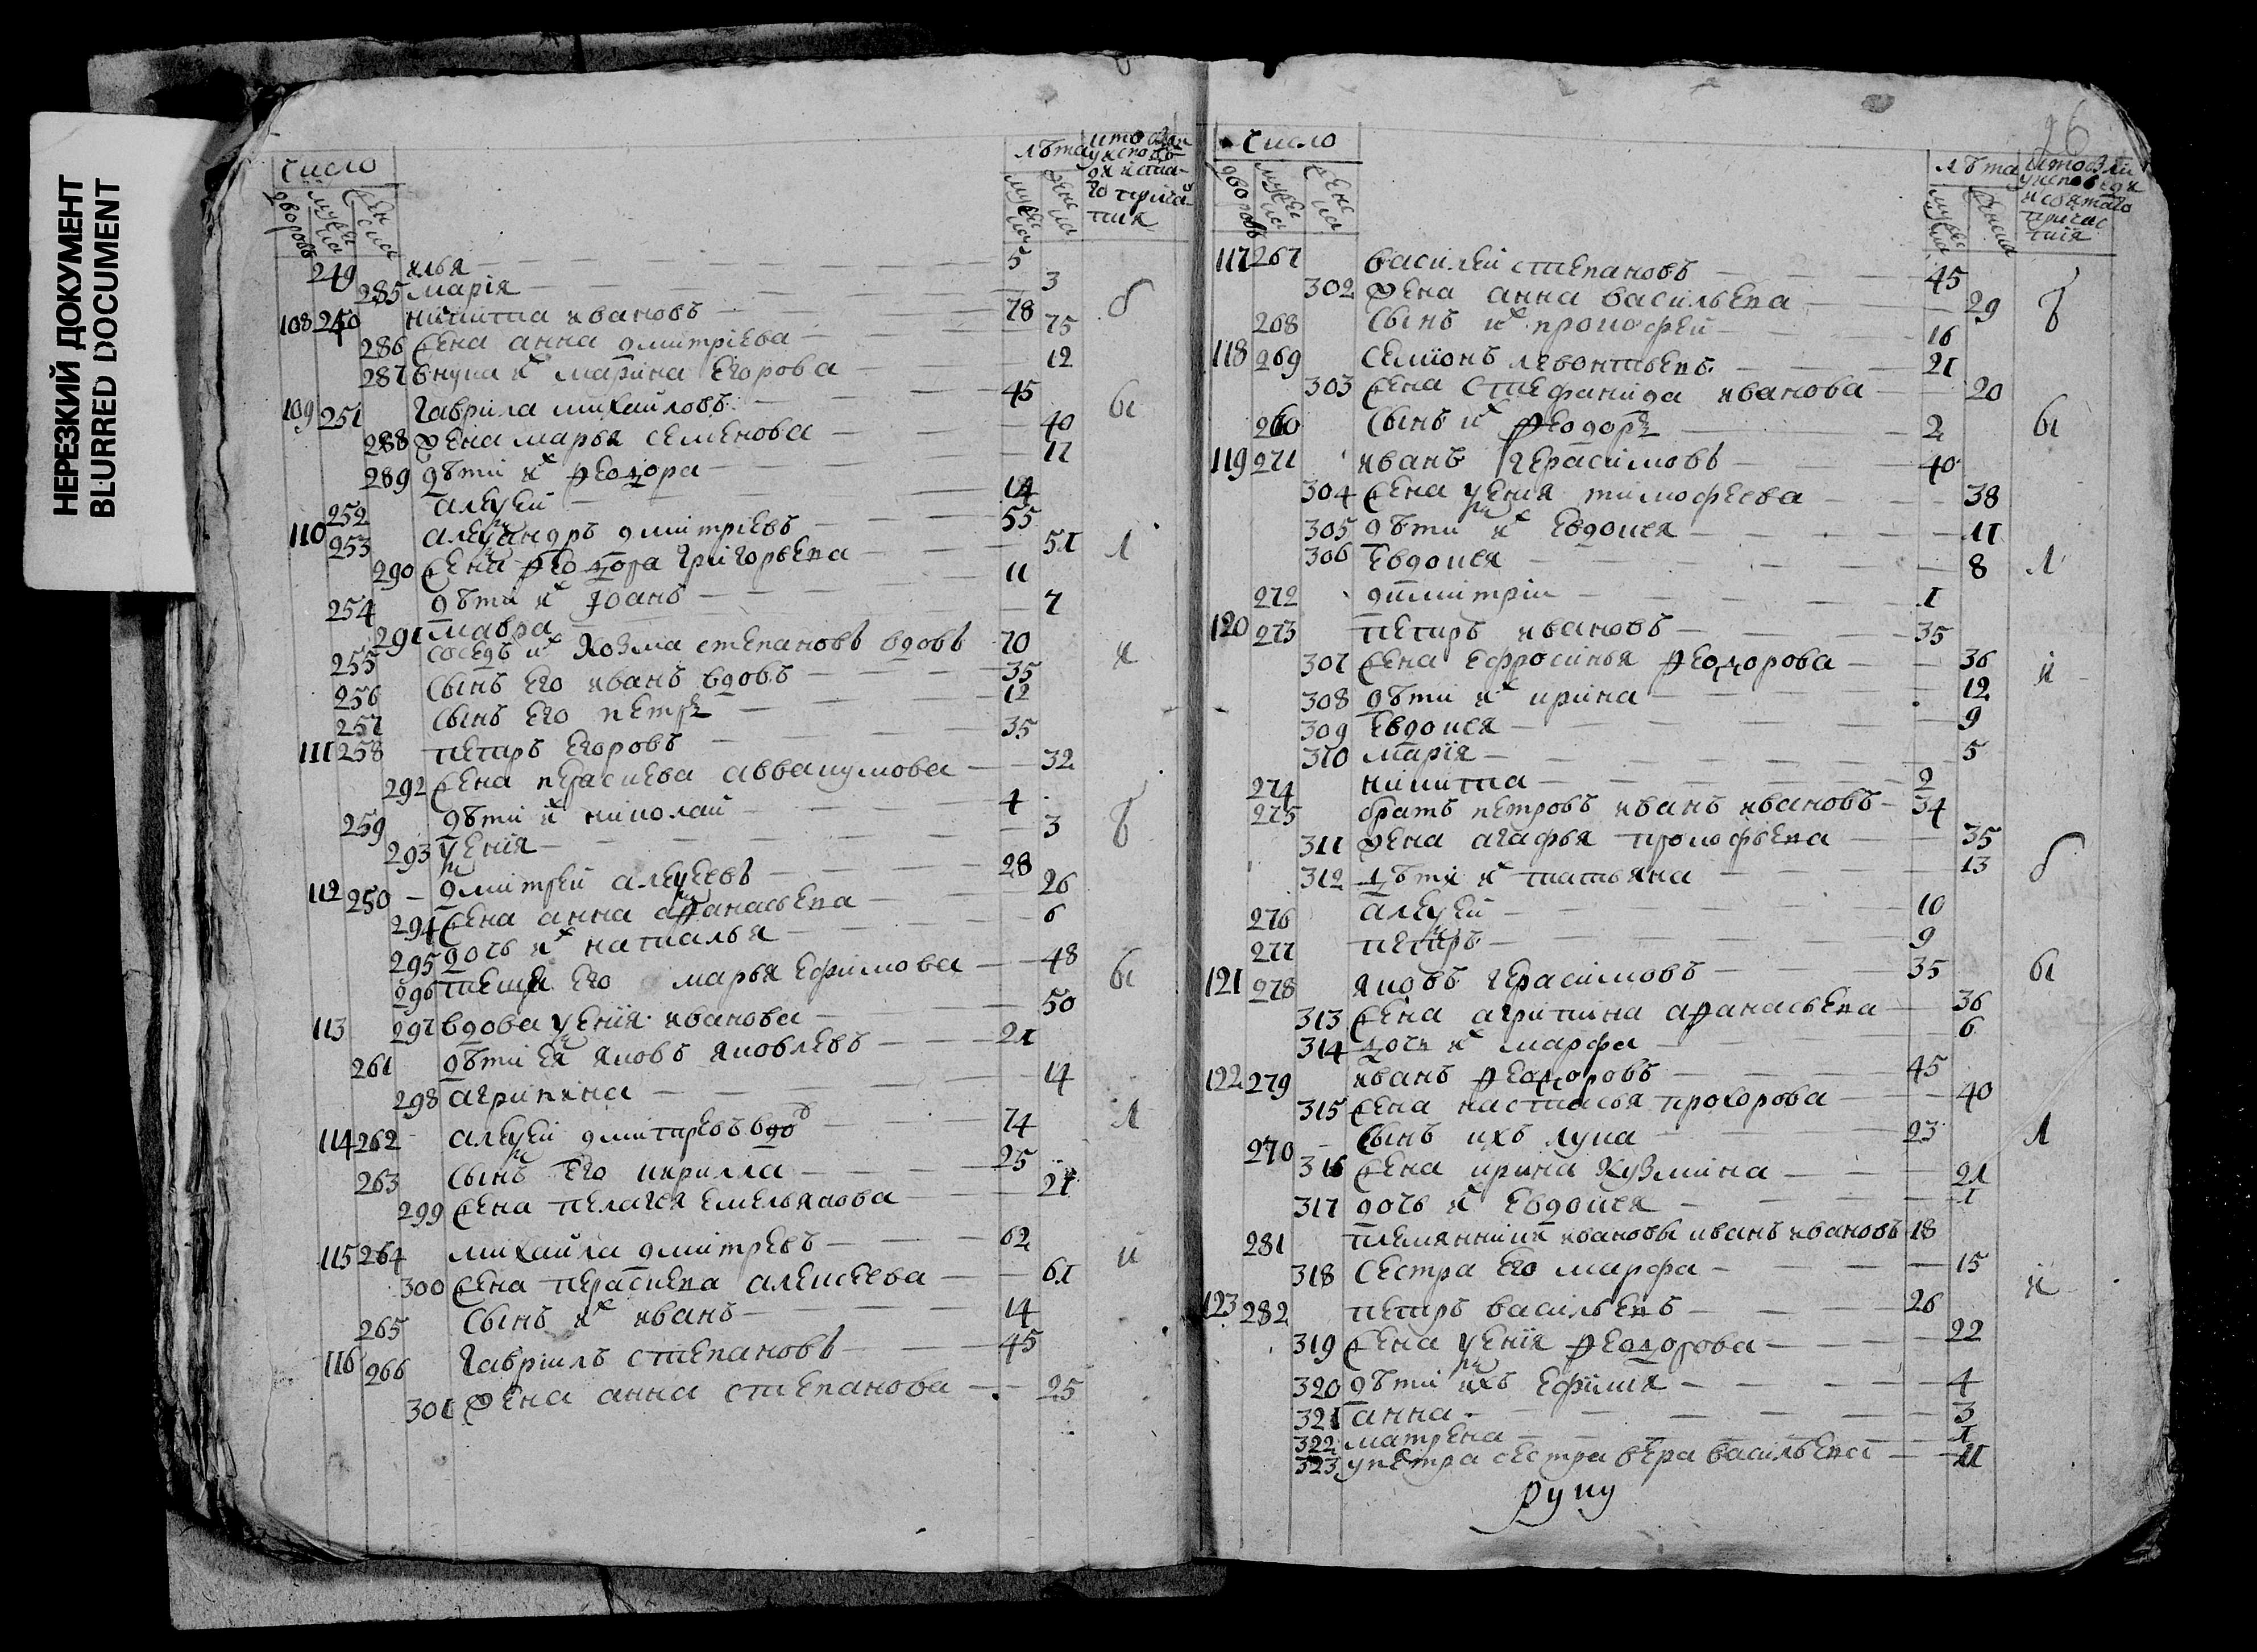 НЕРЕЗКИЙ ДОКУМЕНТ
BLURRED DOCUMENT
число
дворовъ
мужска
женска
лѣта
мужска
женска
249 илья 5
285 марія 3
108 250 никита ивановъ 78
286 жена анна дмитріева 75
287 внука их марина егорова 12
109 251 гаврила михайловъ 45
288 жена марья семенова 40
289 дѣти их феодора 17
252 алексей 14
110 253 александръ дмитріевъ 55
290 жена феодора григорьева 51
254 дѣти их іоанъ 11
291 мавра 7
255 соседъ их козма степановъ вдовъ 70
256 сынъ его иванъ вдовъ 35
257 сынъ его петръ 12
111 258 петръ егоровъ 35
292 жена парасиева аввакумова 32
259 дѣти их николай 4
293 ксенія 3
112 250 дмитрей алексеевъ 28
294 жена анна афанасьева 26
295 дочь их наталья 6
296 теща его марья ефимова 48
113 297 вдова ксенія иванова 50
261 дѣти ея яковъ яковлевъ 21
298 агрипина 14
114 262 алексей дмитревъ вдо 74
263 сынъ его кирилла 25
299 жена пелагея емельянова 21
115 264 михайла дмитревъ 62
300 жена парасиева алексеева 61
265 сынъ их иванъ 14
116 266 гаврилъ степановъ 45
301 жена анна степанова 25
96
число
дворовъ
мужска
женска
лѣта
мужска
женска
117 267 василей степановъ 45
302 жена анна васильева 29
268 сынъ их прокофей 16
118 269 семіонъ левонтьевъ 21
303 жена стефанида иванова 20
260 сынъ их феодоръ 2
119 271 иванъ герасимовъ 40
304 жена ксенія тимофеева 38
305 дѣти их евдокея 11
306 евдокея 8
272 димитрій 1
120 273 петръ ивановъ 35
307 жена ефросинья феодорова 36
308 дѣти их ирина 12
309 евдокея 9
310 марія 5
274 никита 2
275 братъ петровъ иванъ ивановъ 34
311 жена агафья прокофьева 35
312 дѣти их татьяна 13
276 алексей 10
277 петръ 9
121 278 яковъ герасимовъ 35
313 жена агрипина афанасьева 36
314 дочь их марфа 6
122 279 иванъ феодоровъ 45
315 жена настасья прохорова 40
270 сынъ ихъ лука 23
316 жена ирина кузмина 21
317 дочь их евдокея 1
281 племянникъ ивановы иванъ ивановъ 18
318 сестра его марфа 15
123 282 петръ васильевъ 26
319 жена ксенія феодорова 22
320 дѣти ихъ ефимия 4
321 анна 3
322 матрена 1
323 у петра сестра вера васильева 11
руку